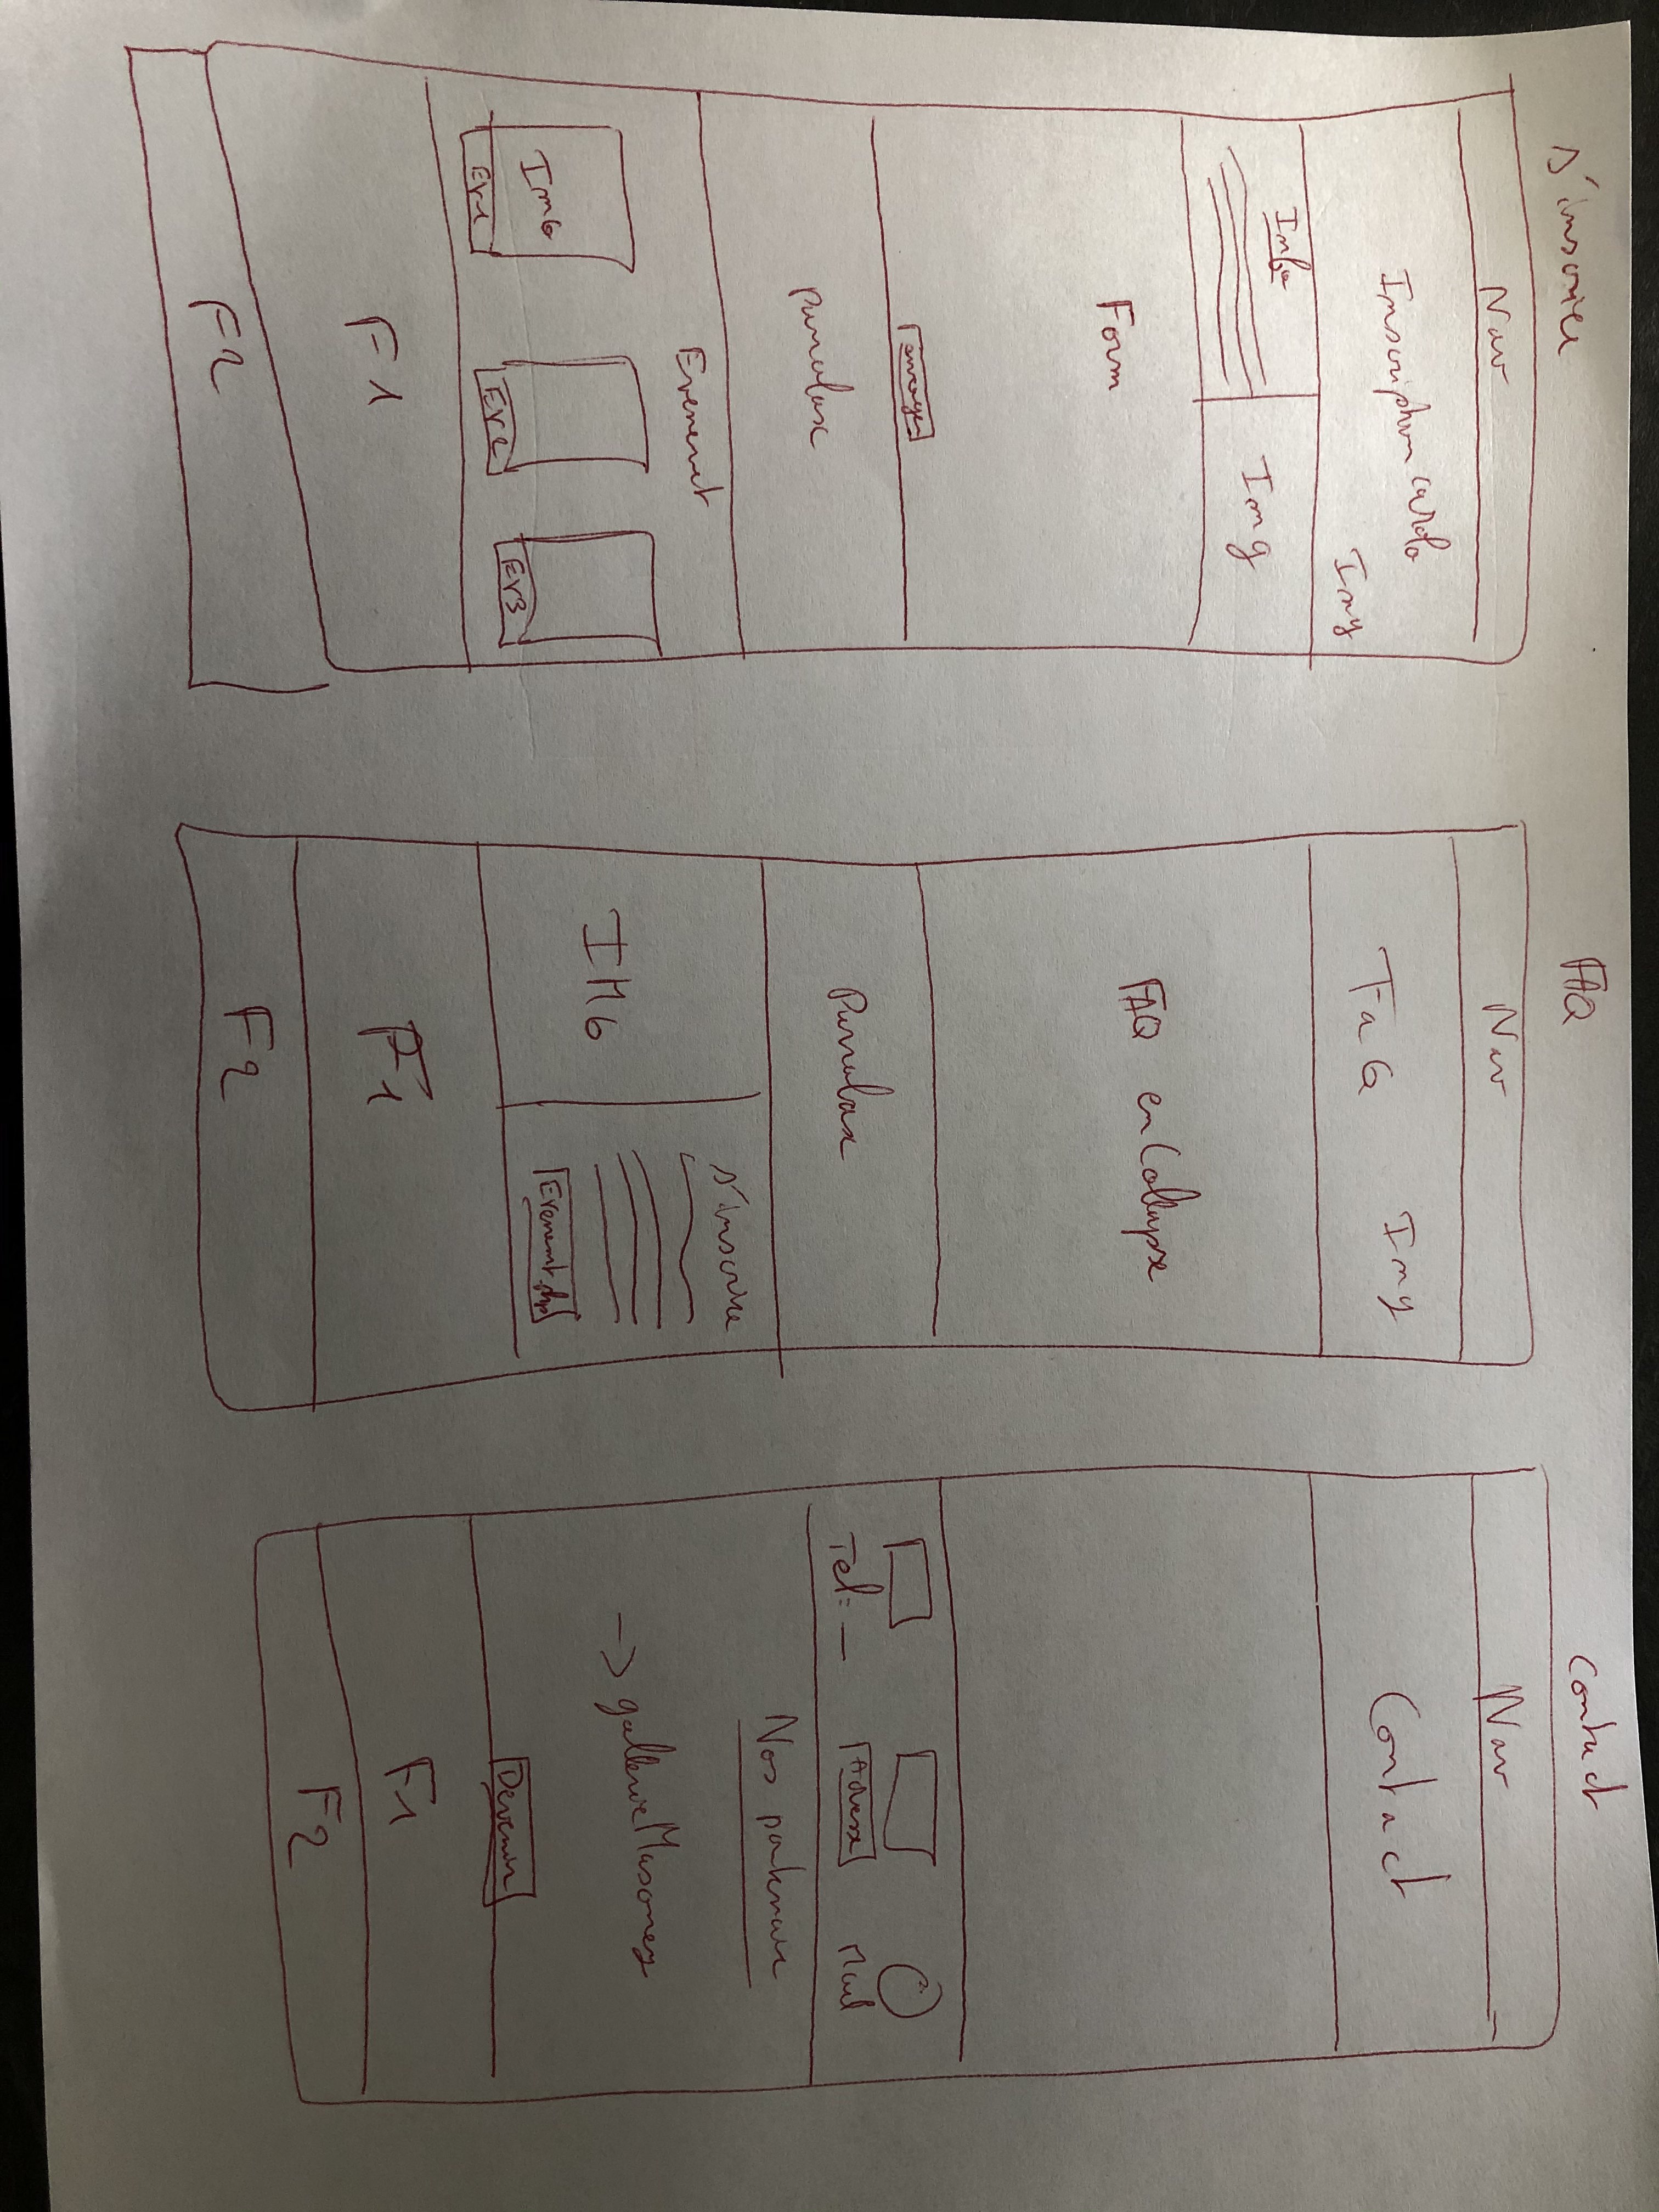 s'inscrire
Nav
Inscription carolo
Img
Info
Img
Form
envoyer
parralax
Evenemet
ImG
Ev1
Ev2
Ev3
F1
F2
FAQ
Nav
FaQ
Img
FAQ en Collapse
Parralax
IMG
s'inscrire
Evenemt.php
F1
F2
Contact
Nav
Contact
Tel: —
Adresse
Mail
Nos partenaire
-> gallerie Masonery
Devenir
F1
F2